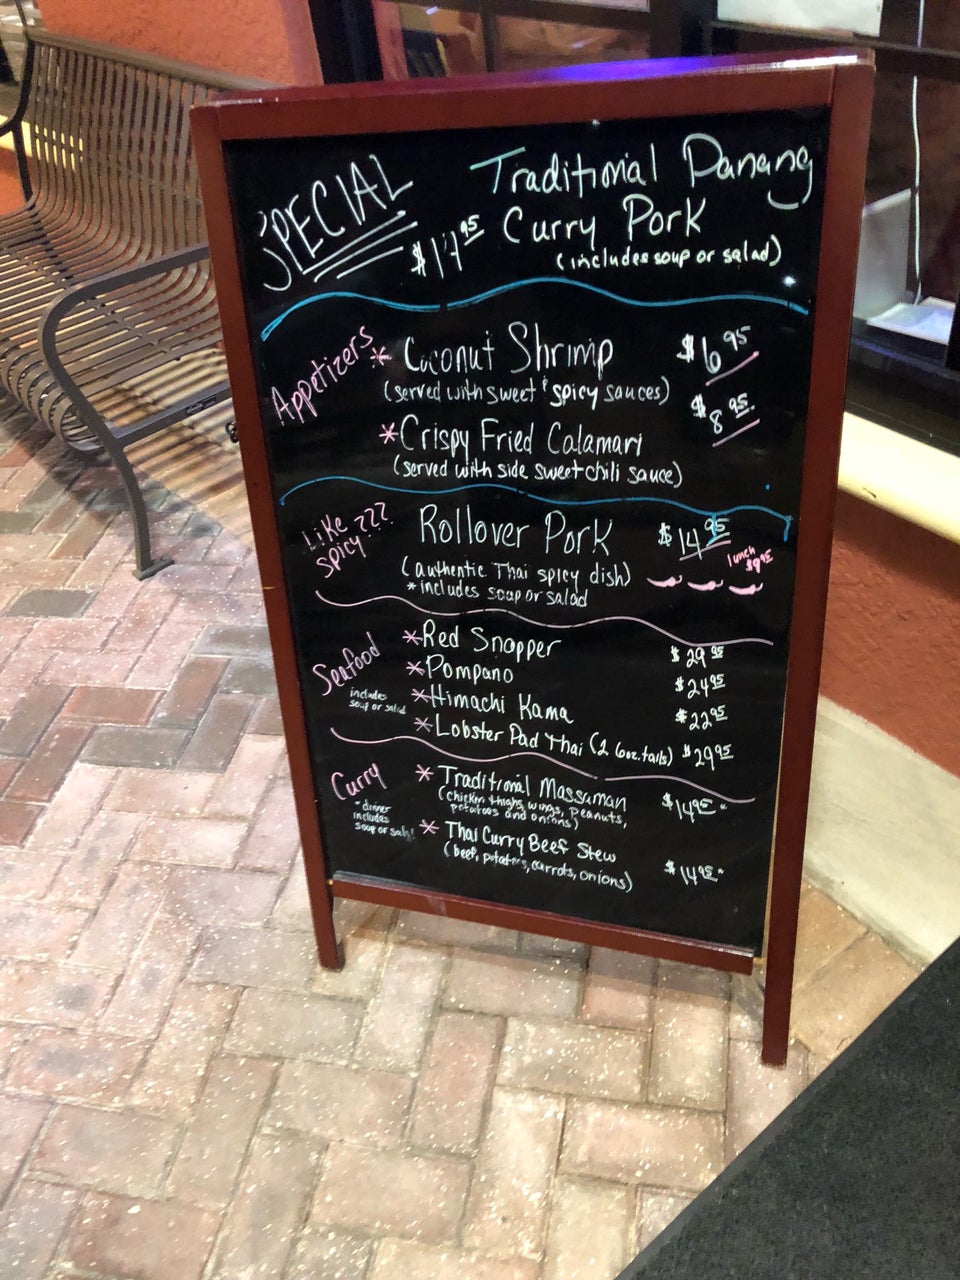 SPECIAL
Traditional Panang
$17.95 Curry Pork
(includes soup or salad)
Appetizers
* Coconut Shrimp $6.95
(served with sweet & spicy sauces)
* Crispy Fried Calamari $8.95
(served with side sweet chili sauce)
Like Spicy???
Rollover Pork $14.95
(authentic Thai spicy dish) lunch $9.95
* includes soup or salad
Seafood
includes
soup or salad
* Red Snapper $29.95
* Pompano $24.95
* Himachi Kama $22.95
* Lobster Pad Thai (2 6oz. tails) $29.95
Curry
* dinner
includes
soup or salad
* Traditional Massuman $14.95*
(chicken thighs, wings, peanuts,
potatoes and onions)
* Thai Curry Beef Stew
(beef, potatoes, carrots, onions) $14.95*